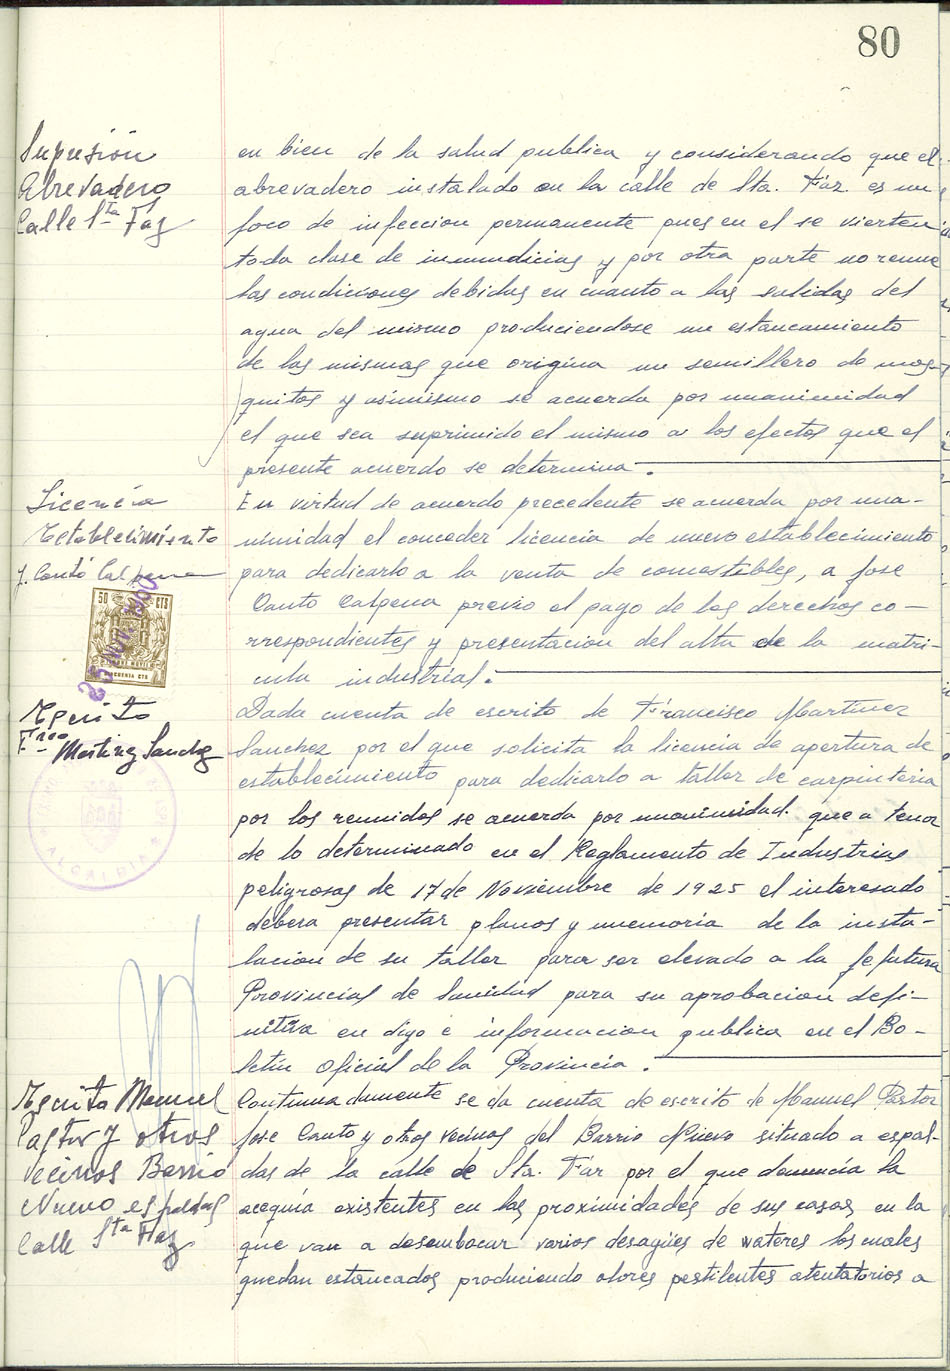 80
Supresión
Abrevadero
Calle Sta Faz
en bien de la salud publica y considerando que el
abrevadero instalado en la calle de Sta. Faz. es un
foco de infeccion permanente pues en el se vierten
toda clase de inmundicias y por otra parte no reune
las condiciones debidas en cuanto a las salidas del
agua del mismo produciendose un estancamiento
de las mismas que origina un semillero de mos-
quitos y asimismo se acuerda por unanimidad
el que sea suprimido el mismo a los efectos que el
presente acuerdo se determina.
Licencia
Establecimiento
J. Cantó Calpena
En virtud de acuerdo precedente se acuerda por una-
nimidad el conceder licencia de nuevo establecimiento
para dedicarlo a la venta de comestibles, a Jose
Canto Calpena previo el pago de los derechos co-
rrespondientes y presentacion del alta de la matri-
cula industrial.
50 CTS
25 NOV. 1960
Escrito
Frco
Martinez Sanchez
ALCALDIA
Dada cuenta de escrito de Francisco Martinez
Sanchez por el que solicita la licencia de apertura de
establecimiento para dedicarlo a taller de carpinteria
por los reunidos se acuerda por unanimidad. que a tenor
de lo determinado en el Reglamento de Industrias
peligrosas de 17 de Noviembre de 1925 el interesado
debera presentar planos y memoria de la insta-
lacion de su taller para ser elevado a la Jefatura
Provincial de Sanidad para su aprobacion defi-
nitiva en digo e informacion publica en el Bo-
letin Oficial de la Provincia.
Escrito Manuel
Pastor y otros
vecinos Barrio
Nuevo espaldas
Calle Sta Faz
Continuadamente se da cuenta de escrito de Manuel Pastor
Jose Canto y otros vecinos del Barrio Nuevo situado a espal-
das de la calle de Sta. Faz por el que denuncia la
acequia existentes en las proximidades de sus casas en la
que van a desembocar varios desagües de wateres los cuales
quedan estancados produciendo olores pestilentes atentatorios a